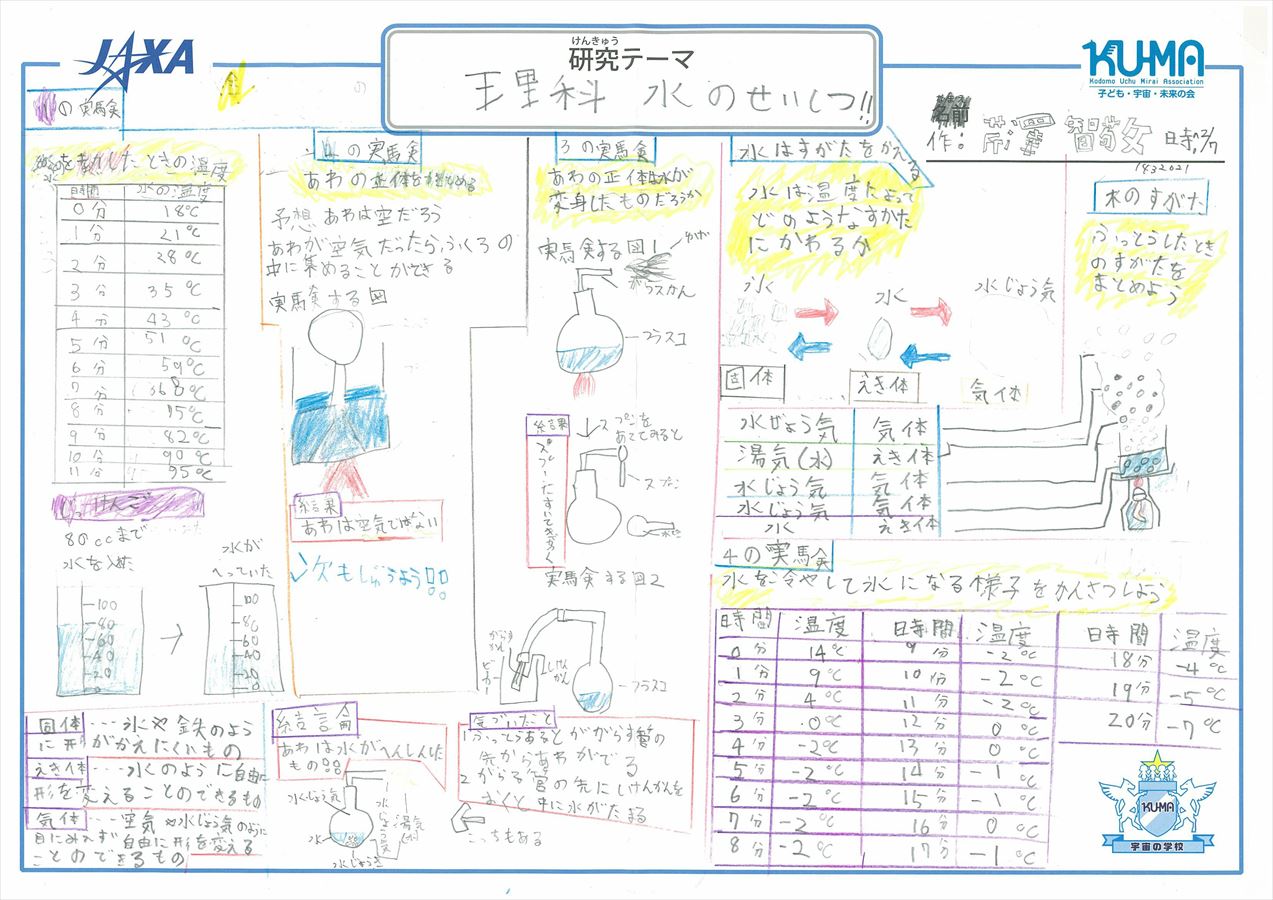 JAXA
けんきゅう
研究テーマ
理科 水のせいしつ!!
KU-MA
Kodomo Uchu Mirai Association
子ども・宇宙・未来の会
名前
作:
の実験
時間 水の温度
0分 18℃
1分 21℃
2分 28℃
3分 35℃
4分 43℃
5分 51℃
6分 59℃
7分
8分
9分 82℃
10分 90℃
11分 95℃
80ccまで
水を入れた
水が
へっていた
100
80
60
40
20
0
100
80
60
40
20
0
固体・・・氷や鉄のよう
に形がかえにくいもの
えき体・・・・水のように自由に
形を変えることのできるもの
気体・・・空気や水じょう気のように
目にみえず自由に形を変える
ことのできるもの
の実験
あわの正体を
予想 あわは空だろう
あわが空気だったら、ふくろの
中に集めることができる
実験する図
結果
あわは空気ではない
次もじゅうよう!!
結言侖
あわは水がへんしんした
もの!!
水じょう気
水
水じょう気
湯気
3の実験
あわの正体は水が
変身したものだろうか
実験する図1
フラスコ
結果
スプーンを
あててみると
スプーン
実験する図2
ビーカー
しけんかん
フラスコ
気づいたこと
1ふっとうするとがらす管の
先からあわがでる
2がらす管の先にしけんかんを
おくと中に水がたまる
こっちもある
水はすがたをかえる
水は温度によって
どのようなすがた
にかわるか
氷
水
水じょう気
固体
えき体
気体
水じょう気 気体
湯気(水) えき体
水じょう気 気体
水じょう気 気体
水 えき体
水のすがた
ふっとうしたとき
のすがたを
まとめよう
4の実験
水を冷やして氷になる様子をかんさつしよう
時間 温度 時間 温度 時間 温度
0分 14℃ 9分 -2℃ 18分 -4℃
1分 9℃ 10分 -2℃ 19分 -5℃
2分 4℃ 11分 -2℃ 20分 -7℃
3分 0℃ 12分 0℃
4分 -2℃ 13分 0℃
5分 -2℃ 14分 -1℃
6分 -2℃ 15分 -1℃
7分 -2℃ 16分 0℃
8分 -2℃ 17分 -1℃
KU-MA
宇宙の学校